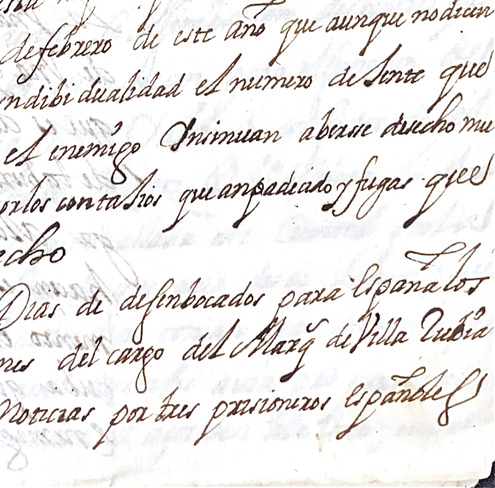 de febrero de este año que aunque no dicen
yndibidualidad el numero de Jente que
el enemigo Ynsinuan aberse desecho mu
por los contajios que an padecido y fugas que
echo
Dias de desenbocados para España los
nes del cargo del Marq de Villa Rubia
Noticias por tres prisioneros Españoles